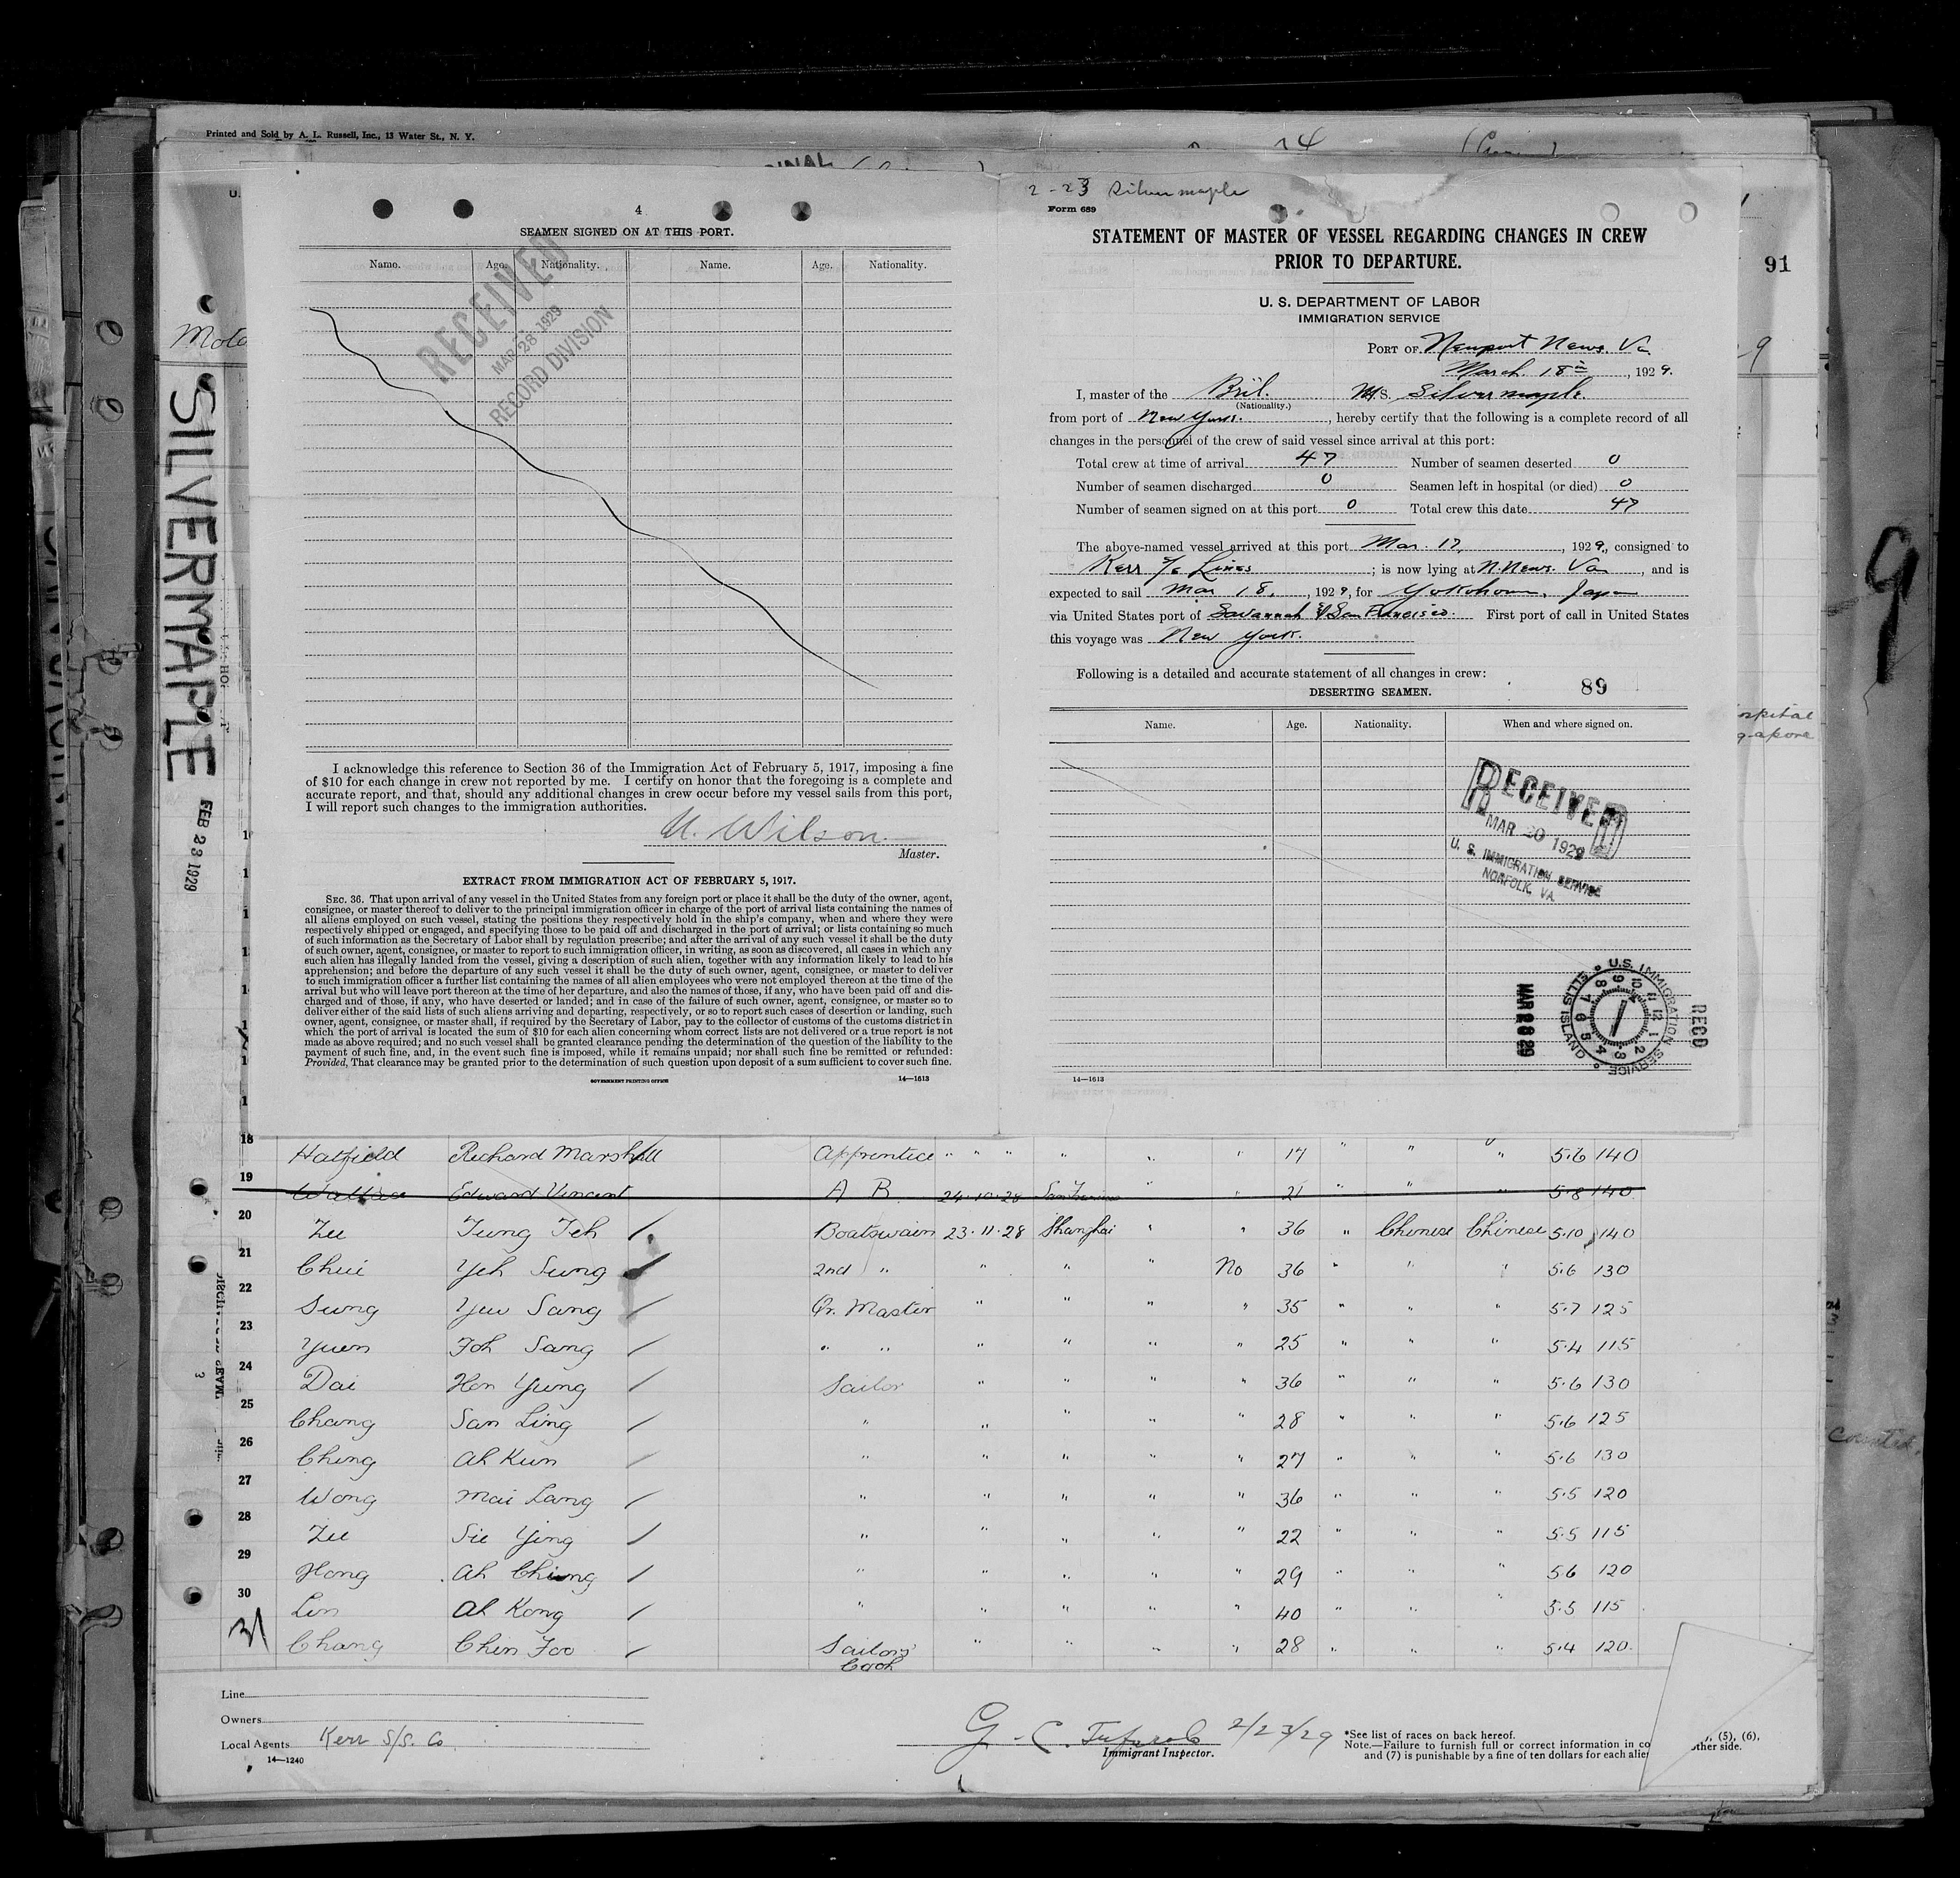 Printed and Sold by A. L. Russell, Inc., 13 Water St., N. Y.
14
4
SEAMEN SIGNED ON AT THIS PORT.
Name. Age. Nationality. Name. Age. Nationality.
RECEIVED
MAR 28 1929
RECORD DIVISION
I acknowledge this reference to Section 36 of the Immigration Act of February 5, 1917, imposing a fine
of $10 for each change in crew not reported by me. I certify on honor that the foregoing is a complete and
accurate report, and that, should any additional changes in crew occur before my vessel sails from this port,
I will report such changes to the immigration authorities.
Wilson
Master.
EXTRACT FROM IMMIGRATION ACT OF FEBRUARY 5, 1917.
SEC. 36. That upon arrival of any vessel in the United States from any foreign port or place it shall be the duty of the owner, agent,
consignee, or master thereof to deliver to the principal immigration officer in charge of the port of arrival lists containing the names of
all aliens employed on such vessel, stating the positions they respectively hold in the ship's company, when and where they were
respectively shipped or engaged, and specifying those to be paid off and discharged in the port of arrival; or lists containing so much
of such information as the Secretary of Labor shall by regulation prescribe; and after the arrival of any such vessel it shall be the duty
of such owner, agent, consignee, or master to report to such immigration officer, in writing, as soon as discovered, all cases in which any
such alien has illegally landed from the vessel, giving a description of such alien, together with any information likely to lead to his
apprehension; and before the departure of any such vessel it shall be the duty of such owner, agent, consignee, or master to deliver
to such immigration officer a further list containing the names of all alien employees who were not employed thereon at the time of the
arrival but who will leave port thereon at the time of her departure, and also the names of those, if any, who have been paid off and dis-
charged and of those, if any, who have deserted or landed; and in case of the failure of such owner, agent, consignee, or master so to
deliver either of the said lists of such aliens arriving and departing, respectively, or so to report such cases of desertion or landing, such
owner, agent, consignee, or master shall, if required by the Secretary of Labor, pay to the collector of customs of the customs district in
which the port of arrival is located the sum of $10 for each alien concerning whom correct lists are not delivered or a true report is not
made as above required; and no such vessel shall be granted clearance pending the determination of the question of the liability to the
payment of such fine, and, in the event such fine is imposed, while it remains unpaid; nor shall such fine be remitted or refunded:
Provided, That clearance may be granted prior to the determination of such question upon deposit of a sum sufficient to cover such fine.
GOVERNMENT PRINTING OFFICE 14—1613
2-23 Silvermaple
Form 689
STATEMENT OF MASTER OF VESSEL REGARDING CHANGES IN CREW
PRIOR TO DEPARTURE.
U. S. DEPARTMENT OF LABOR
IMMIGRATION SERVICE
PORT OF Newport News. Va
March 18th, 1929.
I, master of the Brit. M S. Silvermaple.
(Nationality.)
from port of New York., hereby certify that the following is a complete record of all
changes in the personnel of the crew of said vessel since arrival at this port:
Total crew at time of arrival 47 Number of seamen deserted 0
Number of seamen discharged 0 Seamen left in hospital (or died) 0
Number of seamen signed on at this port 0 Total crew this date 47
The above-named vessel arrived at this port Mar. 17, 1929, consigned to
Kerr Lines; is now lying at N. News. Va, and is
expected to sail Mar 18, 1929, for Yokohama, Japan
via United States port of Savannah & San Francisco. First port of call in United States
this voyage was New York.
Following is a detailed and accurate statement of all changes in crew:
DESERTING SEAMEN. 89
Name. Age. Nationality. When and where signed on.
RECEIVED
MAR 20 1929
U. S. IMMIGRATION SERVICE
NORFOLK, VA.
MAR 28 29
U.S. IMMIGRATION SERVICE ELLIS ISLAND
RECD
14—1613
91
9
9
Moto
SILVERMAPLE
FEB 23 1929
ospital
gapore
18 Hatfield Richard Marshall Apprentice " " " " " " 17 " " " 5.6 140
19 Wallace Edward Vincent A B 24.10.28 San Francisco " 21 " " " 5.8 140
20 Zee Tung Teh Boatswain 23.11.28 Shanghai " " 36 " Chinese Chinese 5.10 140
21 Chui Yeh Sung 2nd " " " " No 36 " " " 5.6 130
22 Sung Yew Sang Qr. Master " " " " 35 " " " 5.7 125
23 Yuen Foh Sang " " " " " " 25 " " " 5.4 115
24 Dai Hon Yung Sailor " " " " 36 " " " 5.6 130
25 Chang San Ling " " " " " 28 " " " 5.6 125
26 Ching Ah Kun " " " " " 27 " " " 5.6 130
27 Wong Mai Lang " " " " " 36 " " " 5.5 120
28 Zee Sie Ying " " " " " 22 " " " 5.5 115
29 Hong Ah Chiung " " " " " 29 " " " 5.6 120
30 Lin Ah Kong " " " " " 40 " " " 5.5 115
31 Chang Chin Foo Sailors' Cook " " " " 28 " " " 5.4 120.
Line
Owners
Local Agents Kerr S/S. Co
14—1240
G. C. 2/23/29
Immigrant Inspector.
*See list of races on back hereof.
Note.—Failure to furnish full or correct information in co , (5), (6),
and (7) is punishable by a fine of ten dollars for each alie other side.